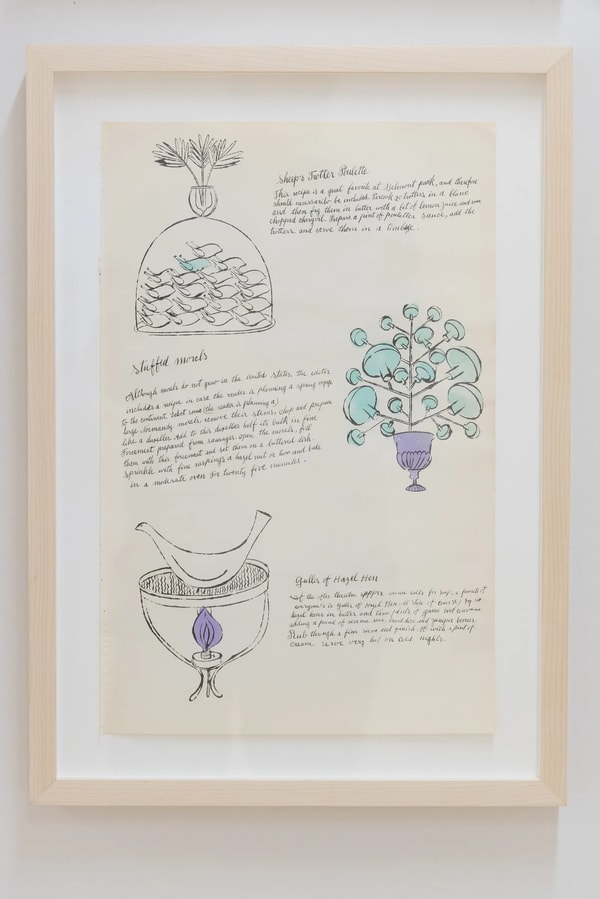 Sheep's Trotter Poulette
This recipe is a great favorite at Belmont park, and therefore
should necessarily be included. Precook 20 trotters in a blanc
and then fry them in butter with a bit of lemon juice and some
chopped chervil. Prepare a pint of poulette sauce, add the
trotters and serve them in a timbale.
Stuffed morels
Although morels do not grow in the United States, the editor
includes a recipe in case the reader is planning a spring voyage
to the continent. (the reader is planning a)
large Normandy morels, remove their stems, chop and prepare
like a duxelles. Add to this duxelles half its bulk in fine
forcemeat prepared from sausage. Open the morels, fill
them with this forcemeat and set them on a buttered dish.
Sprinkle with fine raspings a hazel nut or two and bake
in a moderate oven for twenty five minutes.
Gullis of Hazel Hen
of the after theatre supper a favorite of
everyone's is Gullis of Hazel Hen. fry it
in butter and
adding a pint of and juniper berries.
Rub through a fine sieve and finish it with a pint of
cream. Serve very hot on cold nights.